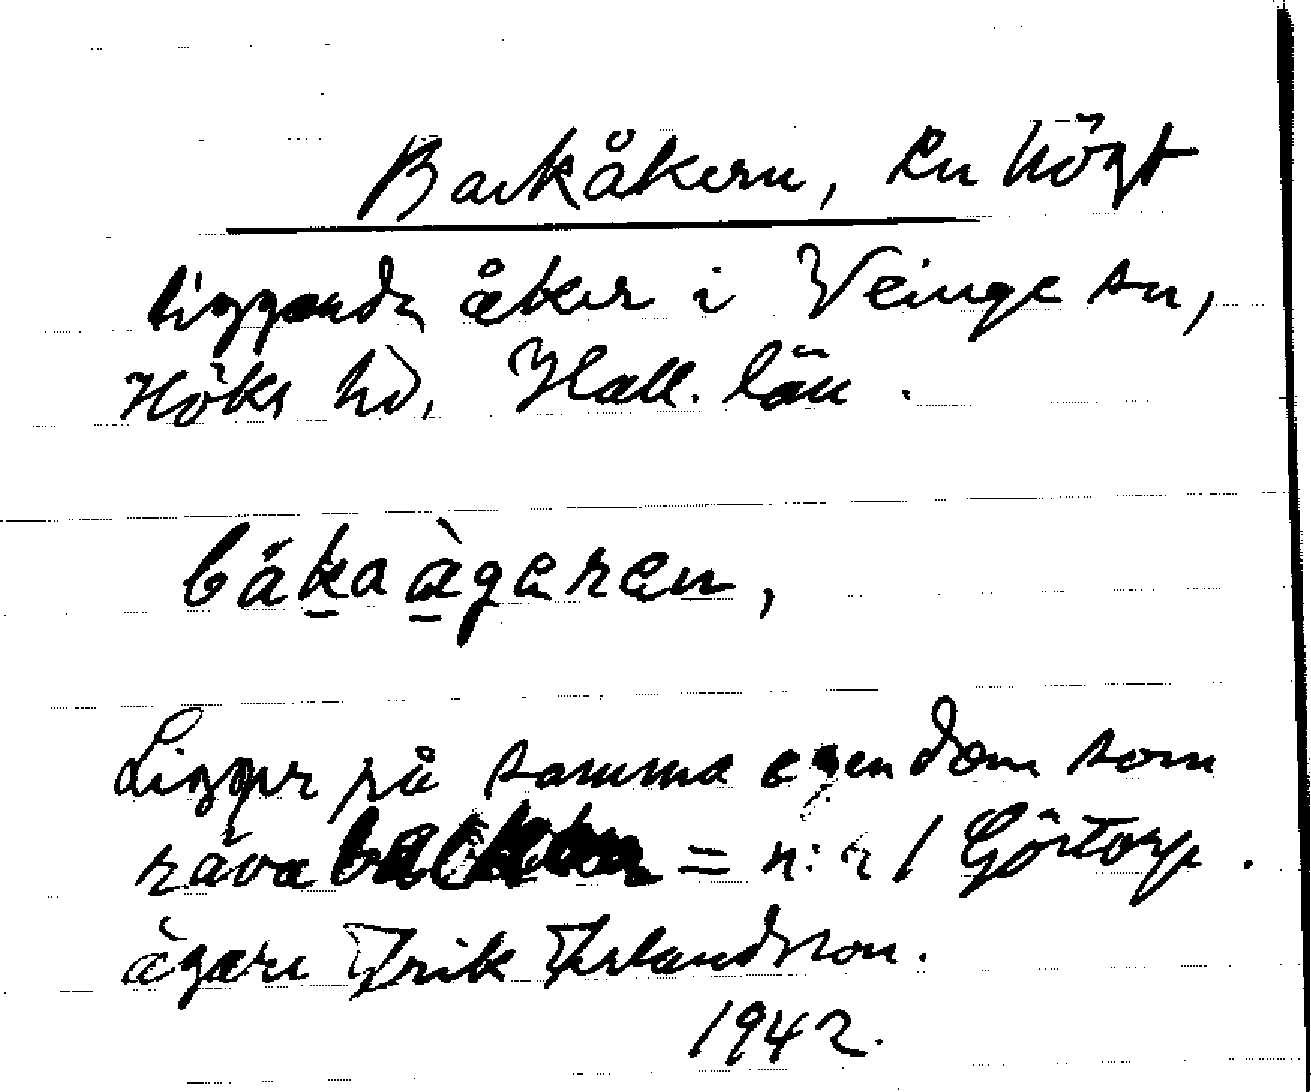 Backåkern, en högt
liggande åker i Veinge sn,
Höks hd, Hall. län.
båkaàgeren,
Ligger på samma egendom som
räva backen = n:r 1 Göstorp.
ägare Erik Erlandsson.
1942.